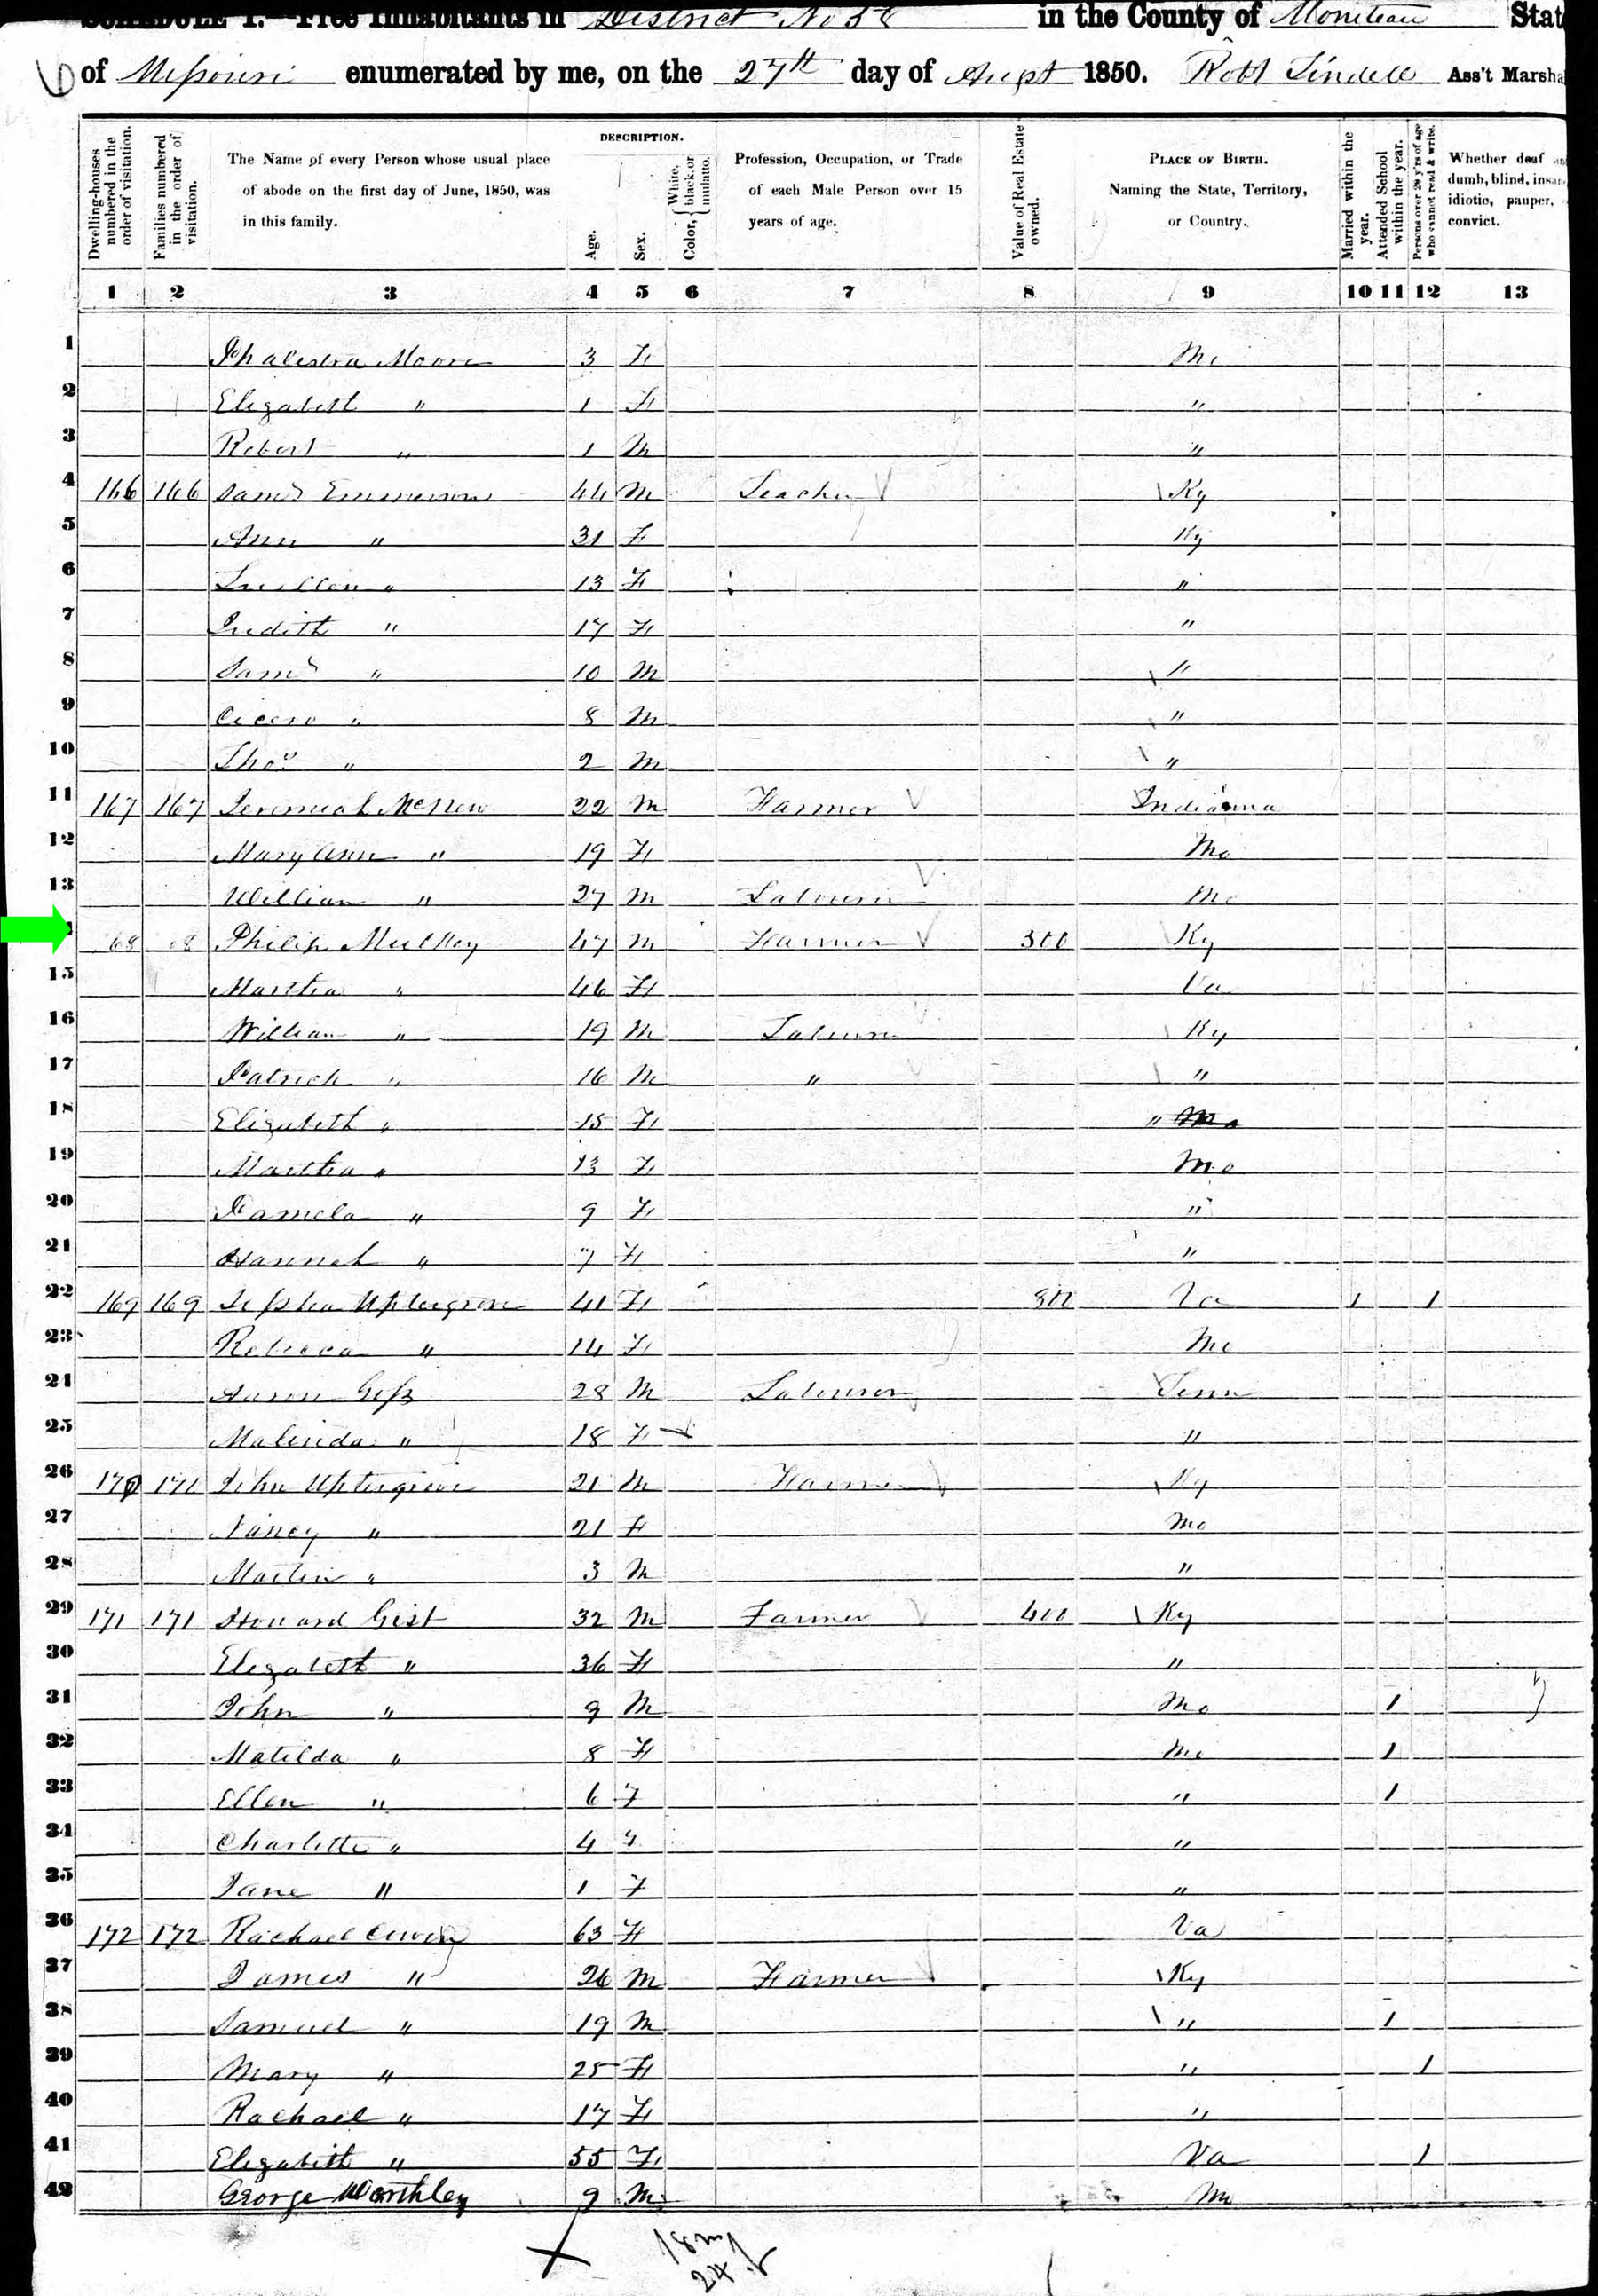 SCHEDULE I.—Free Inhabitants in District No 58 in the County of Moniteau Stat
of Missouri enumerated by me, on the 27th day of Augst 1850. Robt Tindell Ass't Marsha
Dwelling-houses numbered in the order of visitation.
Families numbered in the order of visitation.
The Name of every Person whose usual place of abode on the first day of June, 1850, was in this family.
DESCRIPTION.
Age.
Sex.
Color, { White, black, or mulatto.
Profession, Occupation, or Trade of each Male Person over 15 years of age.
Value of Real Estate owned.
PLACE OF BIRTH. Naming the State, Territory, or Country.
Married within the year.
Attended School within the year.
Persons over 20 y'rs of age who cannot read & write.
Whether deaf an dumb, blind, insan idiotic, pauper, convict.
1 2 3 4 5 6 7 8 9 10 11 12 13
1 Moore 3 F Mo
2 Elizabeth " 1 F "
3 Robert " 1 M "
4 166 166 Saml Emmerson 44 M Teacher Ky
5 Ann " 31 F Ky
6 Luellen " 13 F "
7 Judith " 17 F "
8 Saml " 10 M "
9 Cicero " 8 M "
10 Thos " 2 M "
11 167 167 Jeremiah McNew 22 M Farmer Indianna
12 Mary Ann " 19 F Mo
13 William " 27 M Labourer Mo
68 68 Philip Mulkey 47 M Farmer 300 Ky
15 Martha " 46 F Va
16 William " 19 M Labourer Ky
17 Patrick " 16 M " "
18 Elizabeth " 15 F " Mo
19 Martha " 13 F Mo
20 Pamela " 9 F "
21 Hannah " 7 F "
22 169 169 Uptergrove 41 F 800 Va 1 1
23 Rebecca " 14 F Mo
24 Aaron Gess 28 M Labourer Tenn
25 Malinda " 18 F "
26 170 171 John Uptergrove 21 M Farmer Ky
27 Nancy " 21 F Mo
28 Martin " 3 M "
29 171 171 Howard Gist 32 M Farmer 400 Ky
30 Elizabeth " 36 F "
31 John " 9 M Mo 1
32 Matilda " 8 F Mo 1
33 Ellen " 6 F " 1
34 Charlotte " 4 " "
35 Jane " 1 F "
36 172 172 Rachael Owen 63 F Va
37 James " 26 M Farmer Ky
38 Samuel " 19 M " 1
39 Mary " 25 F " 1
40 Rachael " 17 F "
41 Elizabeth " 55 F Va 1
42 George Worthley 9 M Mo